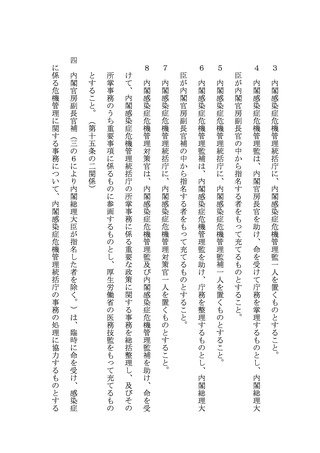 ３　内閣感染症危機管理統括庁に、内閣感染症危機管理監一人を置くものとすること。
４　内閣感染症危機管理監は、内閣官房長官を助け、命を受けて庁務を掌理するものとし、内閣総理大
臣が内閣官房副長官の中から指名する者をもって充てるものとすること。
５　内閣感染症危機管理統括庁に、内閣感染症危機管理監補一人を置くものとすること。
６　内閣感染症危機管理監補は、内閣感染症危機管理監を助け、庁務を整理するものとし、内閣総理大
臣が内閣官房副長官補の中から指名する者をもって充てるものとすること。
７　内閣感染症危機管理統括庁に、内閣感染症危機管理対策官一人を置くものとすること。
８　内閣感染症危機管理対策官は、内閣感染症危機管理監及び内閣感染症危機管理監補を助け、命を受
けて、内閣感染症危機管理統括庁の所掌事務に係る重要な政策に関する事務を総括整理し、及びその
所掌事務のうち重要事項に係るものに参画するものとし、厚生労働省の医務技監をもって充てるもの
とすること。（第十五条の二関係）
四　内閣官房副長官補（三の６により内閣総理大臣が指名した者を除く。）は、臨時に命を受け、感染症
に係る危機管理に関する事務について、内閣感染症危機管理統括庁の事務の処理に協力するものとする